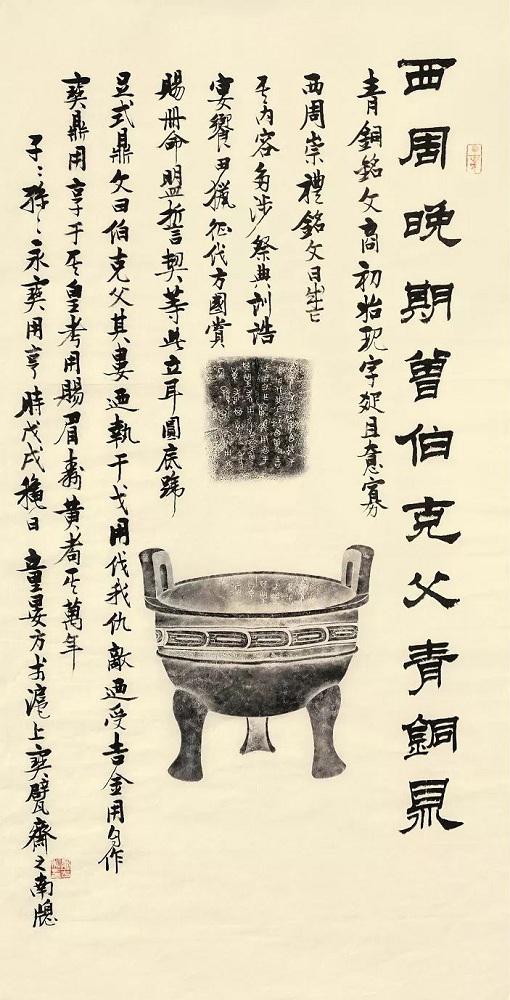 西周晚期曾伯克父青銅鼎
青銅銘文商初始现字且意寡
西周崇禮銘文日
其内容多涉祭典訓誥
宴饗田獵征伐方國賞
賜冊命盟誓契等此立耳圓底蹄
足式鼎文曰伯克父其婁迺執干戈用伐我仇敵迺受吉金用自作
寶鼎用享于其皇考用賜眉壽黃耇其萬年
子〻孫〻永寶用享時戊戌穐日童晏方书滬上寶甓齋之南牕